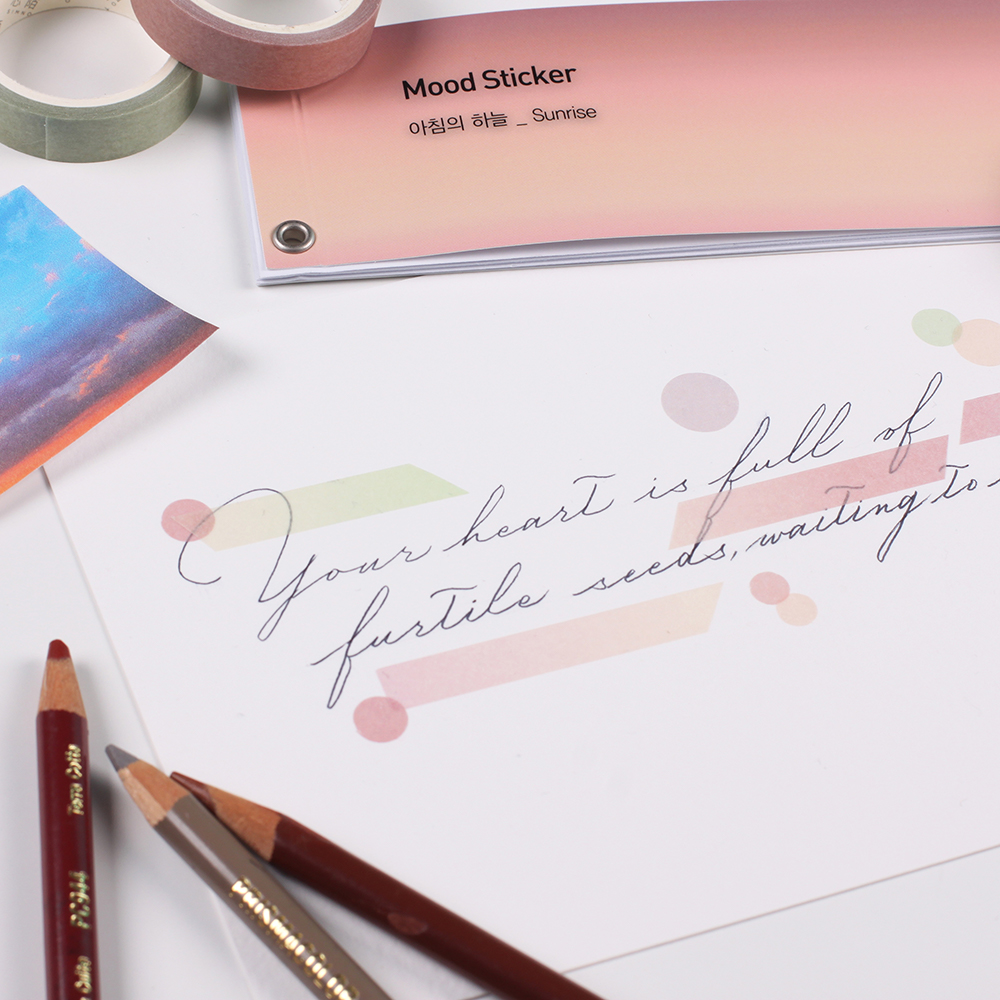 Mood Sticker
아침의 하늘 _ Sunrise
Your heart is full of
furtile seeds, waiting to
Terra Cotta
PC944
PRISMACOLOR